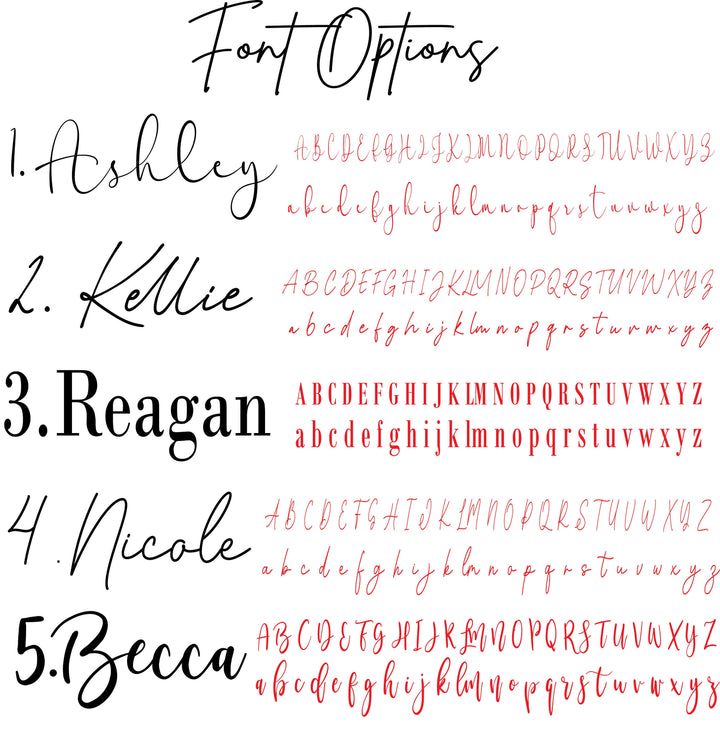 Font Options
1. Ashley
A B C D E F G H I J K L M N O P Q R S T U V W X Y Z
a b c d e f g h i j k l m n o p q r s t u v w x y z
2. Kellie
A B C D E F G H I J K L M N O P Q R S T U V W X Y Z
a b c d e f g h i j k l m n o p q r s t u v w x y z
3. Reagan
A B C D E F G H I J K L M N O P Q R S T U V W X Y Z
a b c d e f g h i j k l m n o p q r s t u v w x y z
4. Nicole
A B C D E F G H I J K L M N O P Q R S T U V W X Y Z
a b c d e f g h i j k l m n o p q r s t u v w x y z
5. Becca
A B C D E F G H I J K L M N O P Q R S T U V W X Y Z
a b c d e f g h i j k l m n o p q r s t u v w x y z